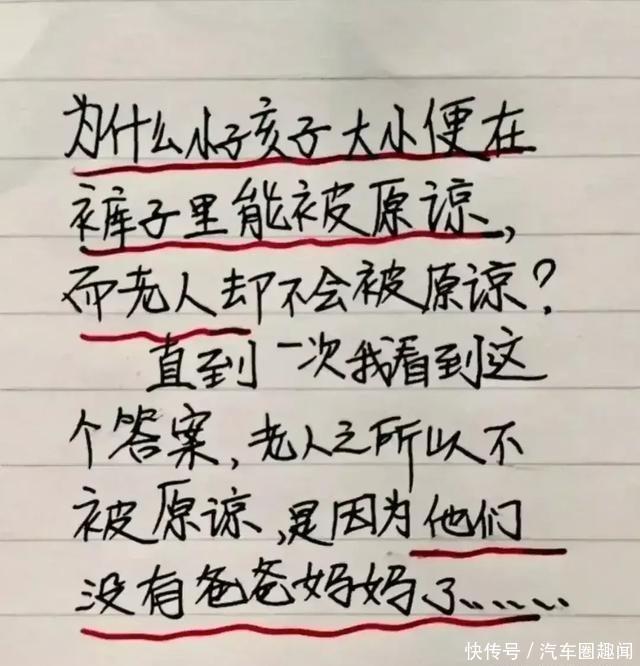 为什么小孩子大小便在
裤子里能被原谅,
而老人却不会被原谅?
直到一次我看到这
个答案,老人之所以不
被原谅,是因为他们
没有爸爸妈妈了......
快传号/汽车圈趣闻